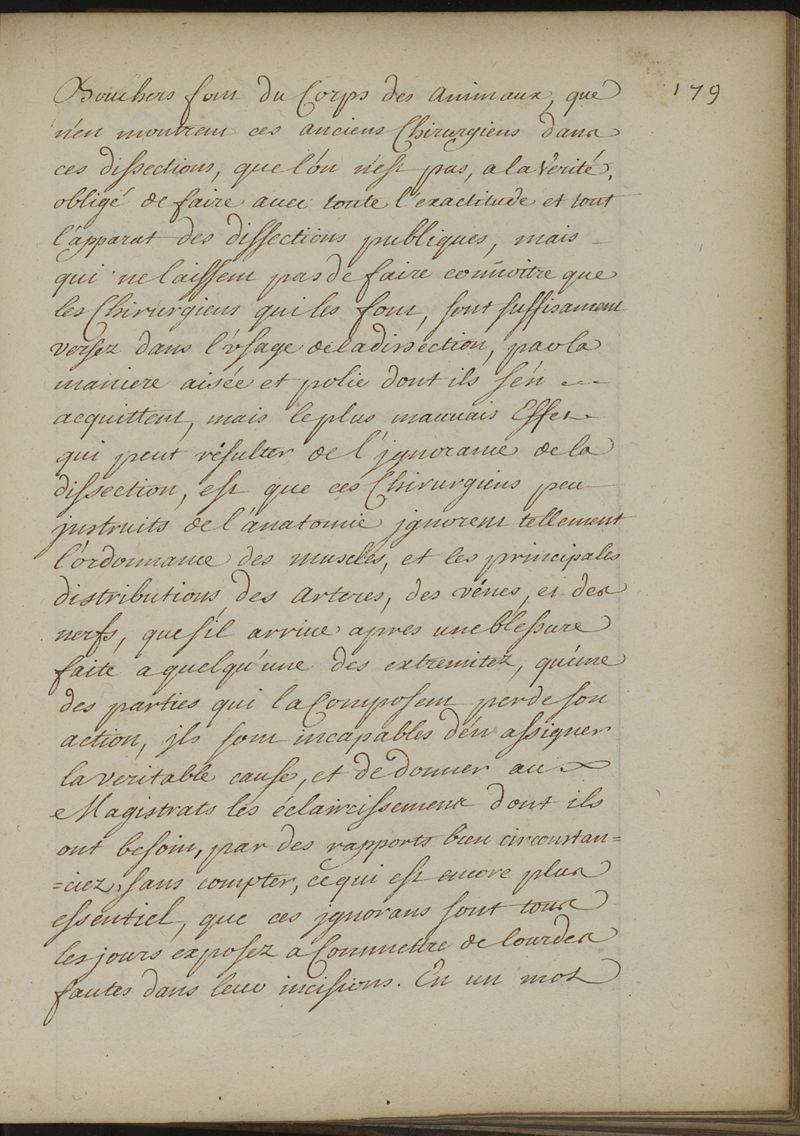 179
Bouchers font du Corps des animaux, que
n'en montrent ces anciens Chirurgiens dans
ces dissections, que l'ón n'est pas, a la Vérité,
obligé de faire avec toute l'exactitude et tout
l'apparat des dissections publiques, mais
qui ne laissent pas de faire connoitre que
les Chirurgiens qui les font, sont suffisament
versez dans l'vsage de la dissection, par la
maniere aisée et polie dont ils s'én
acquittent, mais le plus mauuais Effet
qui peut résulter de l'jgnorance de la
dissection, est que ces Chirurgiens peu
jnstruits de l'anatomie jgnorent tellement
l'órdonnance des muscles, et les principales
distributions des Arteres, des vénes, et des
nerfs, que s'il arriue apres une blessure
faite a quelqu'une des extremitez, qu'une
des parties qui la Composent perde son
action, jls sont incapables d'én assigner
la veritable cause, et de donner au
Magistrats les éclaircissements dont ils
ont besoin, par des rapports bien circonstan=
=ciez, sans compter, ce qui est encore plus
essentiel, que ces jgnorans sont tous
les jours exposez a Commettre de lourdes
fautes dans leur incisions. En un mot